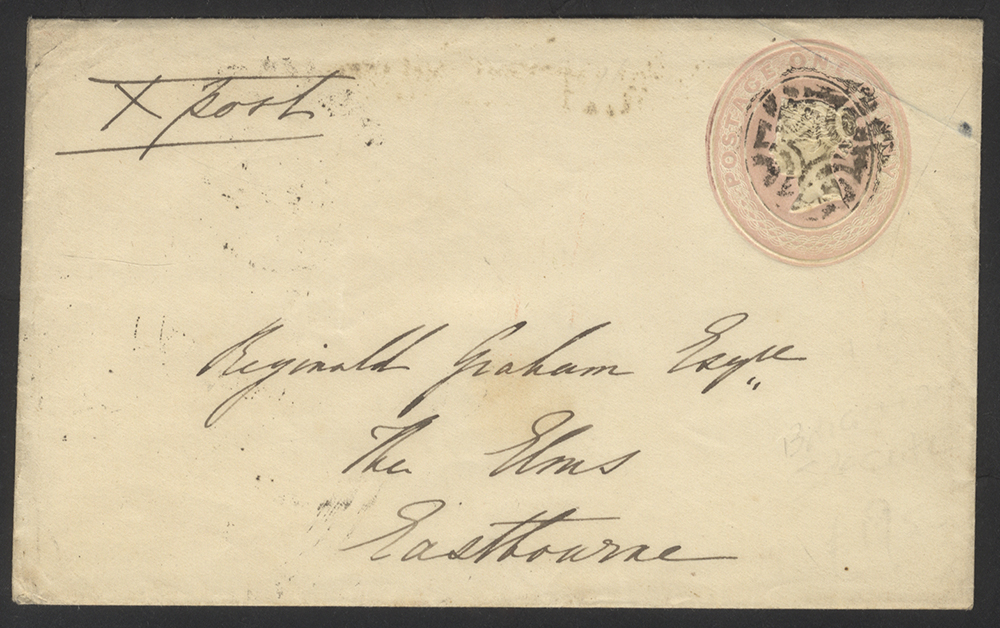 X post
POSTAGE ONE
Reginald Graham Esqre
The Elms
Eastbourne